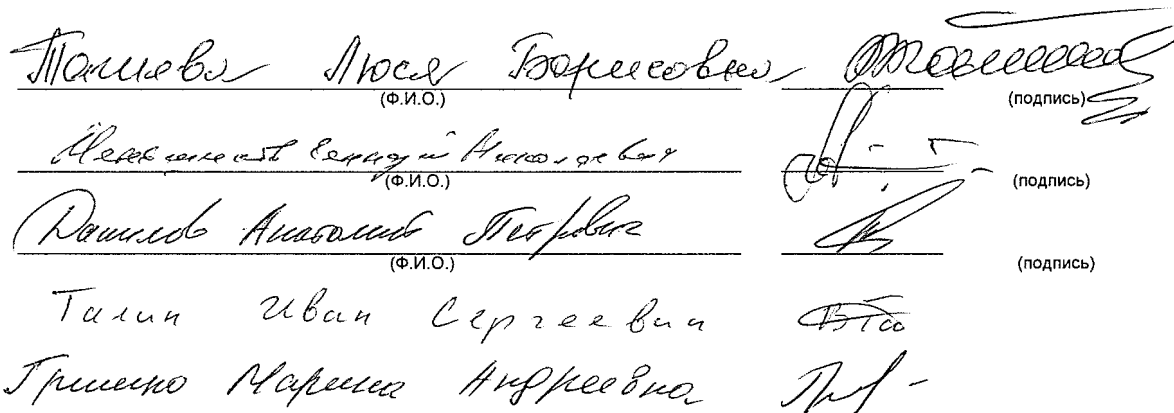 Люся Борисовна
(Ф.И.О.) (подпись)
Геннадий Николаевич
(Ф.И.О.) (подпись)
Данилов Анатолий Петрович
(Ф.И.О.) (подпись)
Талин Иван Сергеевич
Гришко Марина Андреевна